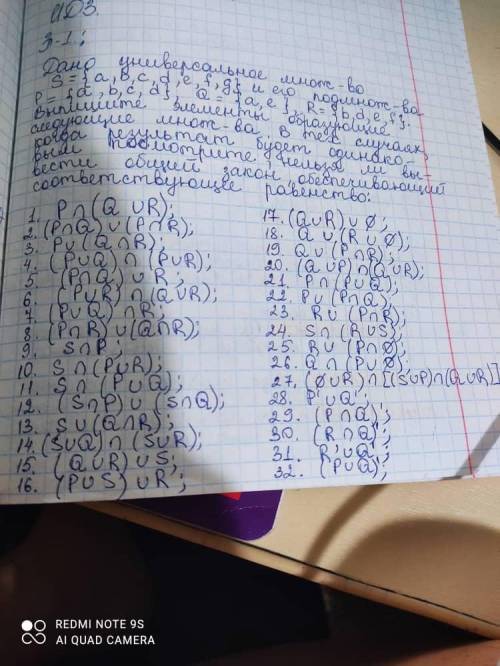 ИДЗ.
3-1:
Дано универсальное множ-во
S={a,b,c,d,e,f,g} и его подмнож-ва
P={a,b,c,d}, Q={a,e}, R={b,d,e,f}.
Выпишите элементы образующие
следующие множ-ва. В тех случаях,
когда результат будет одинако-
вым посмотрите нельзя ли вы-
вести общий закон, обеспечивающий
соответствующее равенство:
1. P∩(Q∪R);
2. (P∩Q)∪(P∩R);
3. P∪(Q∩R);
4. (P∪Q)∩(P∪R);
5. (P∩Q)∪R;
6. (P∪R)∩(Q∪R);
7. (P∪Q)∩R;
8. (P∩R)∪(Q∩R);
9. S∩P;
10. S∩(P∪R);
11. S∩(P∪Q);
12. (S∩P)∪(S∩Q);
13. S∪(Q∩R);
14. (S∪Q)∩(S∪R);
15. (Q∪R)∪S;
16. (P∪S)∪R;
17. (Q∪R)∪∅;
18. Q∪(R∪∅);
19. Q∪(P∩R);
20. (Q∪P)∩(Q∪R);
21. P∩(P∪Q);
22. P∪(P∩Q);
23. R∪(P∩R);
24. S∩(R∪S);
25. R∪(P∩∅);
26. Q∩(P∪∅);
27. (∅∪R)∩[(S∪P)∩(Q∪R)]
28. P'∪Q';
29. (P∩Q)';
30. (R∩Q)';
31. R'∪Q';
32. (P∪Q)';
REDMI NOTE 9S
AI QUAD CAMERA